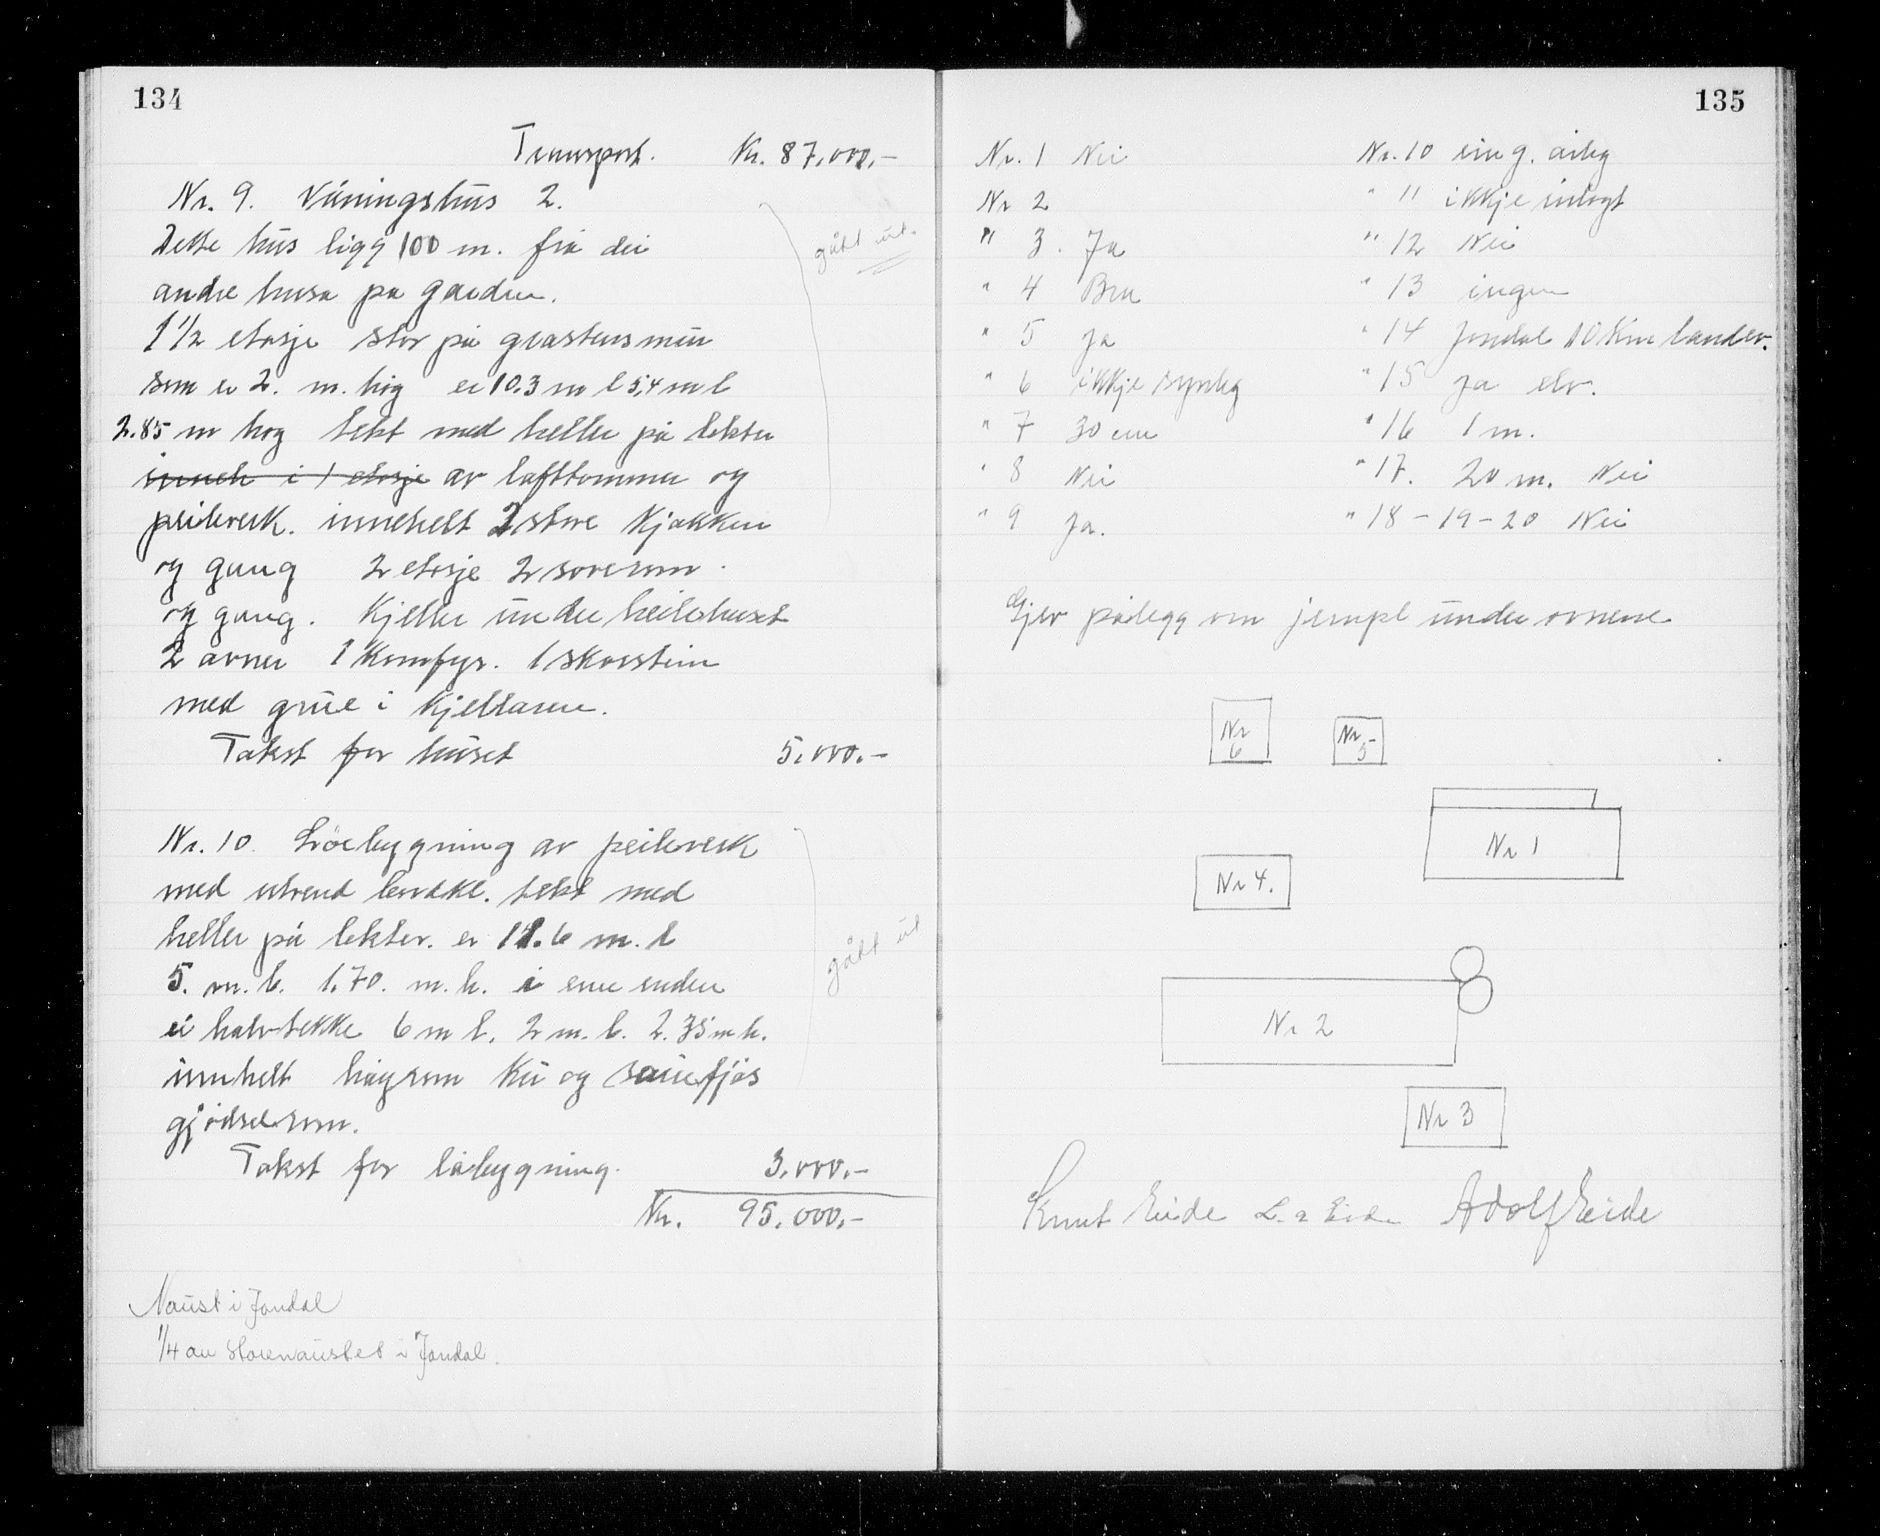 134
Transport. Kr. 87.000.-
Nr. 9. Våningshus 2.
Dette hus ligg 100 m. frå dei
andre husa på garden.
gått ut.
1 1/2 etasje stor på gråsteinsmur
som er 2. m. høg er 10.3 m l 5,4 m b
2.85 m høg tekt med heller på lekter
inneh i 1 etasje av lafttømmer og
peilverk. innehelt 2 stove kjøkken
og gang 2 etasje 2 soverom.
og gang. Kjeller under heile huset
2 ovner 1 Komfyr. 1 skorstein
med grue i kjellaren.
Takst for huset 5.000.-
Nr. 10. Löebygning av peilverk
med utvend bordkl. tekt med
heller på lekter. er 11.6 m. l
5. m. b. 1.70. m. h. i eine enden
ei halvtekke 6 m l. 2 m. b. 2.35 m h.
gått ut
innhelt høyrom ku og sauefjøs
gjødselrom.
Takst for löbygning. 3.000.-
Kr. 95.000.-
Naust i Jondal
1/4 av Storenaustet i Jondal.
135
Nr. 1 Nei
Nr 2
" 3. Ja
" 4 Bra
" 5 ja
" 6 ikkje synleg
" 7 30 cm
" 8 Nei
" 9 Ja.
Nr. 10 ein g. årleg
" 11 ikkje inlagt
" 12 Nei
" 13 ingen
" 14 Jondal 10 Km landev.
" 15 ja elv.
" 16 1 m.
" 17. 20 m. Nei
" 18 - 19 - 20 Nei
Gjev pålegg om jernpl under ovnene
Nr 6
Nr. 5
Nr 1
Nr 4.
Nr 2
Nr 3
Knut Eide L. a Eide Adolf Eide